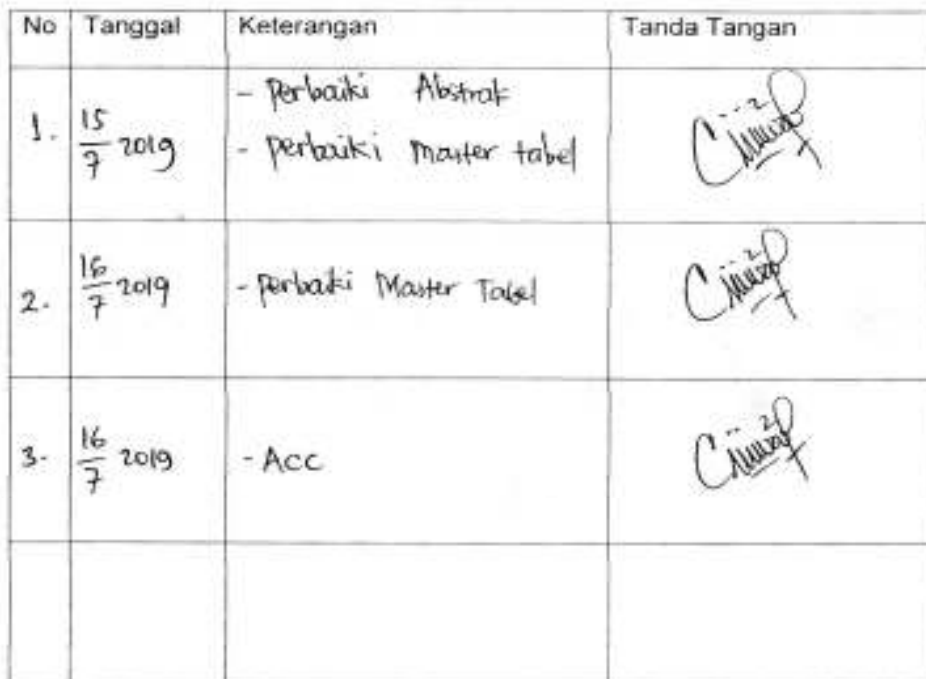 No Tanggal Keterangan Tanda Tangan
- Perbaiki Abstrak
1. 15/7 2019 - perbaiki Master tabel
2. 16/7 2019 - perbaiki Master Tabel
3. 16/7 2019 - Acc